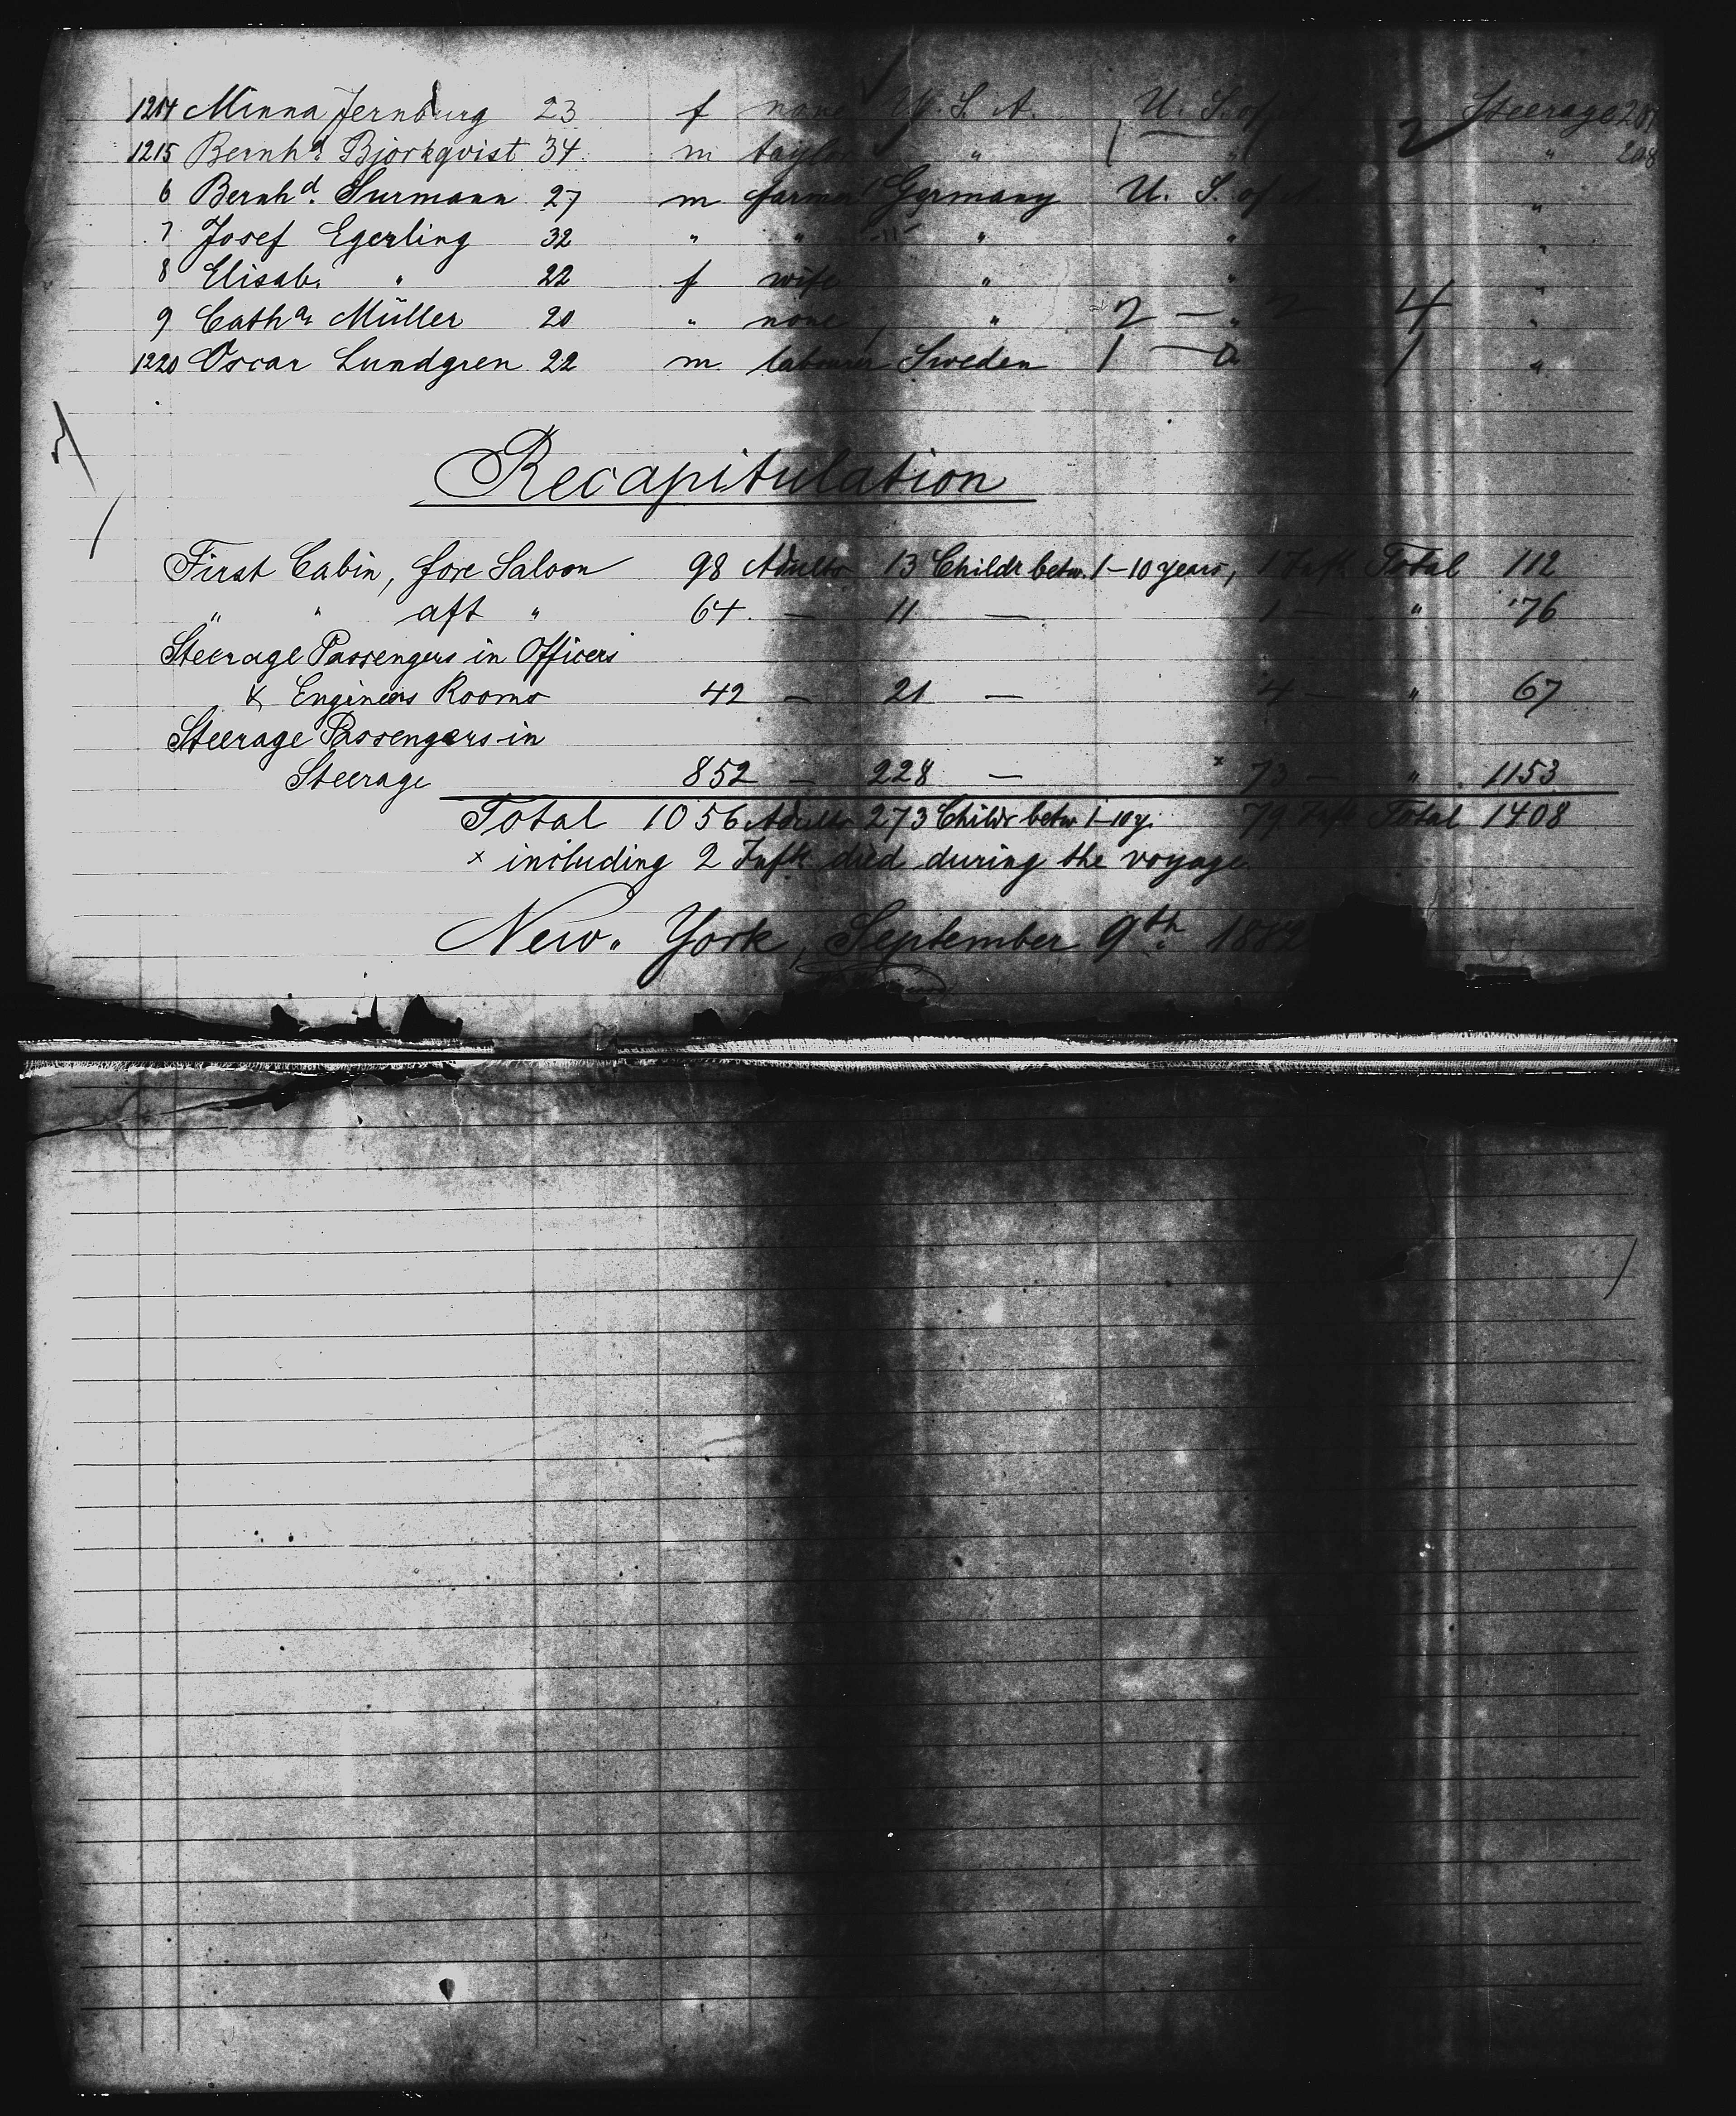 1214 Minna Jernburg 23 f none U. S. A. U. S. of Steerage 207
1215 Bernhd. Bjorkqvist 34 m tayl " " 2 " 208
6 Bernhd. Surmann 27 m farmer Germany U. S. of A "
7 Josef Egerling 32 " " " " "
8 Elisab. " 22 f wife " " "
9 Catha. Müller 20 " none " 2 — " 2 4 "
1220 Oscar Lundgren 22 m labourer Sweden 1 — 1 "
Recapitulation
First Cabin, fore Saloon 98 Adults 13 Childr betw. 1–10 years, 1 Inft Total 112
" " aft " 64 — 11 — 1 — " 76
Steerage Passengers in Officers
& Engineers Rooms 42 — 21 — 4 — " 67
Steerage Passengers in
Steerage 852 — 228 — × 73 — " 1153
Total 1056 Adults 273 Childr betw 1–10 y. 79 Inft Total 1408
× including 2 Inft. died during the voyage.
New York, September 9th 1882